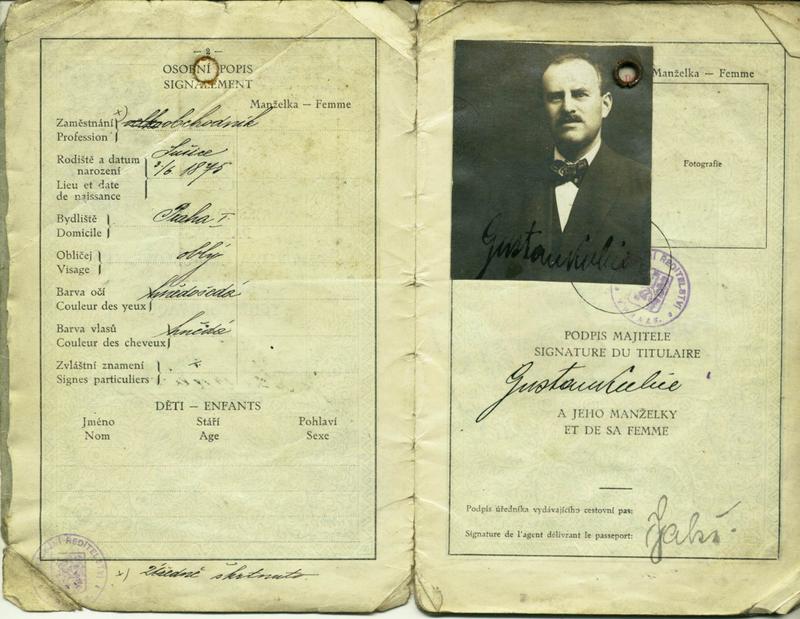 — 2 —
OSOBNÍ POPIS
SIGNALEMENT
Manželka — Femme
Zaměstnání x) obchodník
Profession
Rodiště a datum Sušice
narození 3/6 1875
Lieu et date
de naissance
Bydliště Praha I.
Domicile
Obličej oblý
Visage
Barva očí hnědošedá
Couleur des yeux
Barva vlasů hnědá
Couleur des cheveux
Zvláštní znamení
Signes particuliers
DĚTI — ENFANTS
Jméno Stáří Pohlaví
Nom Age Sexe
x) škrtnuto
Manželka — Femme
Fotografie
PODPIS MAJITELE
SIGNATURE DU TITULAIRE
Gustav
A JEHO MANŽELKY
ET DE SA FEMME
Podpis úředníka vydávajícího cestovní pas:
Signature de l'agent délivrant le passeport: